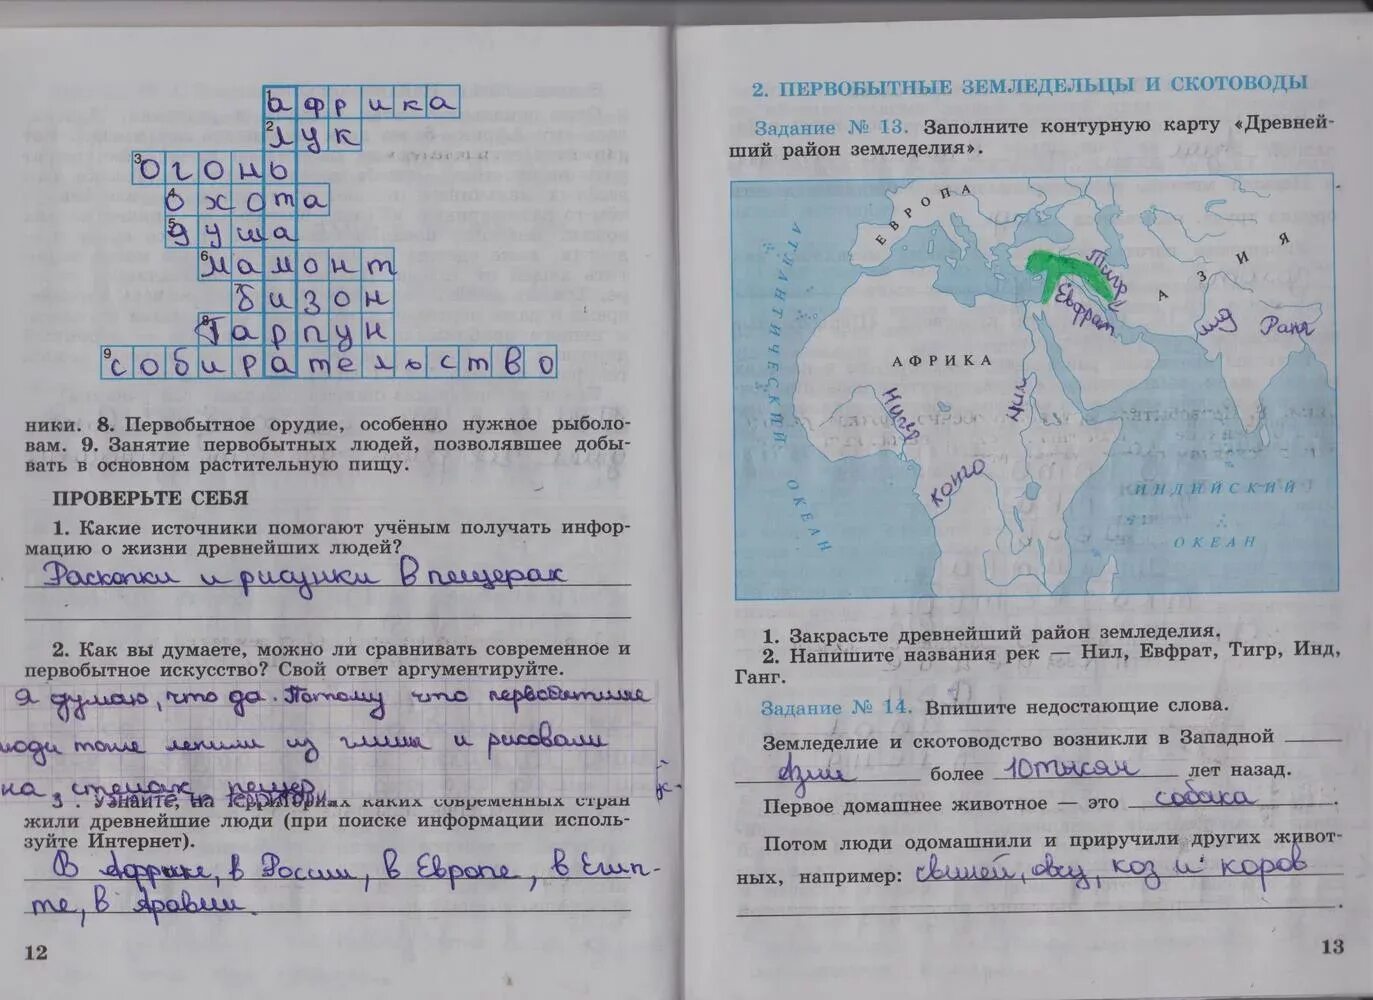 1африка
2лук
3огонь
4охота
5душа
6мамонт
7бизон
8Гарпун
9собирательство
ники. 8. Первобытное орудие, особенно нужное рыболо-
вам. 9. Занятие первобытных людей, позволявшее добы-
вать в основном растительную пищу.
ПРОВЕРЬТЕ СЕБЯ
1. Какие источники помогают учёным получать инфор-
мацию о жизни древнейших людей?
Раскопки и рисунки в пещерах
2. Как вы думаете, можно ли сравнивать современное и
первобытное искусство? Свой ответ аргументируйте.
Я думаю, что да. Потому что первобытные
люди тоже лепили из глины и рисовали
на стенах пещер.
3. Узнайте, на территориях каких современных стран
жили древнейшие люди (при поиске информации исполь-
зуйте Интернет).
В Африке, в России, в Европе, в Егип-
те, в Аравии.
12
2. ПЕРВОБЫТНЫЕ ЗЕМЛЕДЕЛЬЦЫ И СКОТОВОДЫ
Задание № 13. Заполните контурную карту «Древней-
ший район земледелия».
ЕВРОПА
АЗИЯ
АТЛАНТИЧЕСКИЙ ОКЕАН
Тигр
Евфрат
Инд
Ганг
АФРИКА
Нигер
Нил
Конго
ИНДИЙСКИЙ
ОКЕАН
1. Закрасьте древнейший район земледелия.
2. Напишите названия рек — Нил, Евфрат, Тигр, Инд,
Ганг.
Задание № 14. Впишите недостающие слова.
Земледелие и скотоводство возникли в Западной
Азии более 10 тысяч лет назад.
Первое домашнее животное — это собака.
Потом люди одомашнили и приручили других живот-
ных, например: свиней, овц, коз и коров
.
13